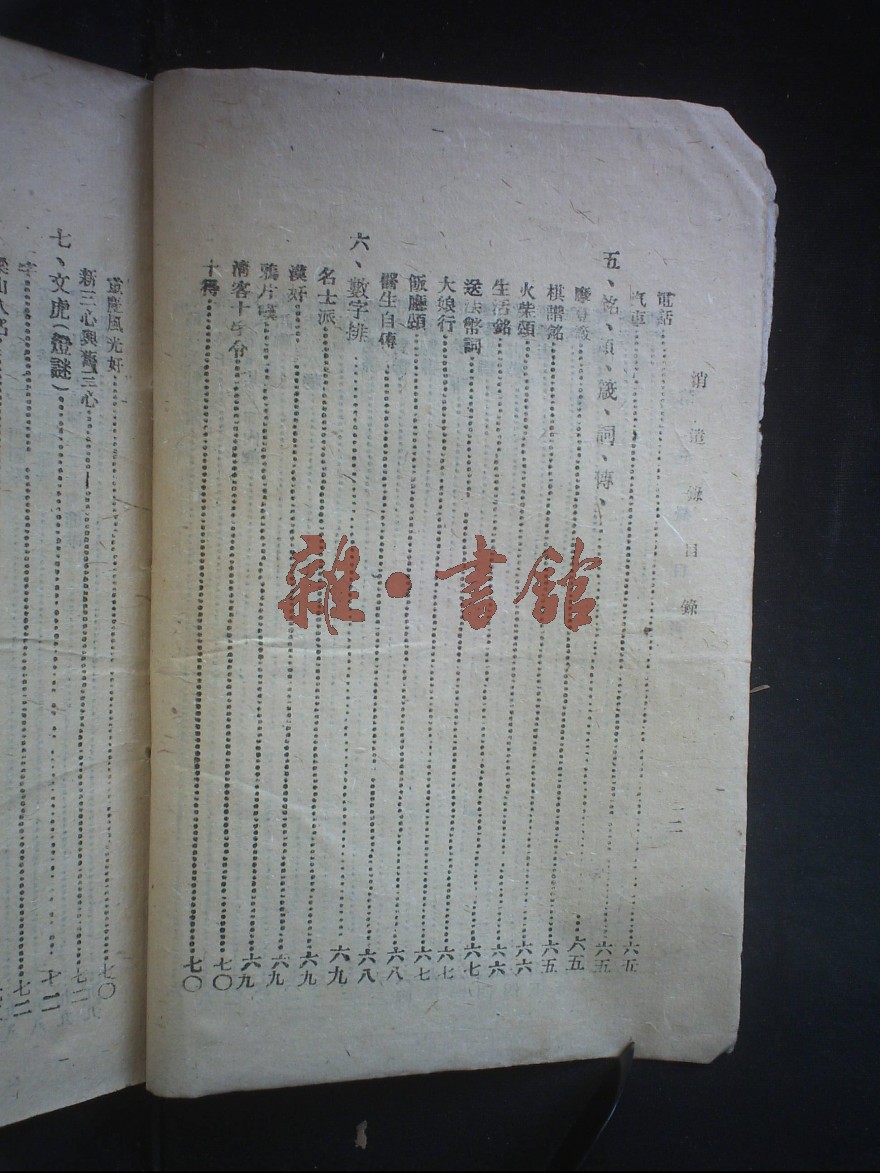 消遣錄目錄
二
電話……六五
汽車……六五
五、銘、頌、箴、詞、傳、
……六五
棋譜銘……六五
火柴頌……六六
生活銘……六六
送法幣詞……六七
大娘行……六七
飯廳頌……六七
醫生自傳……六八
六、數字排……六八
名士派……六九
漢奸……六九
鴉片嘆……六九
清客十字令……六九
十得……七〇
七〇
重慶風光好……七〇
新三心與舊三心……七二
七、文虎(燈謎)……七二
字……七二
梁山八
雜·書館